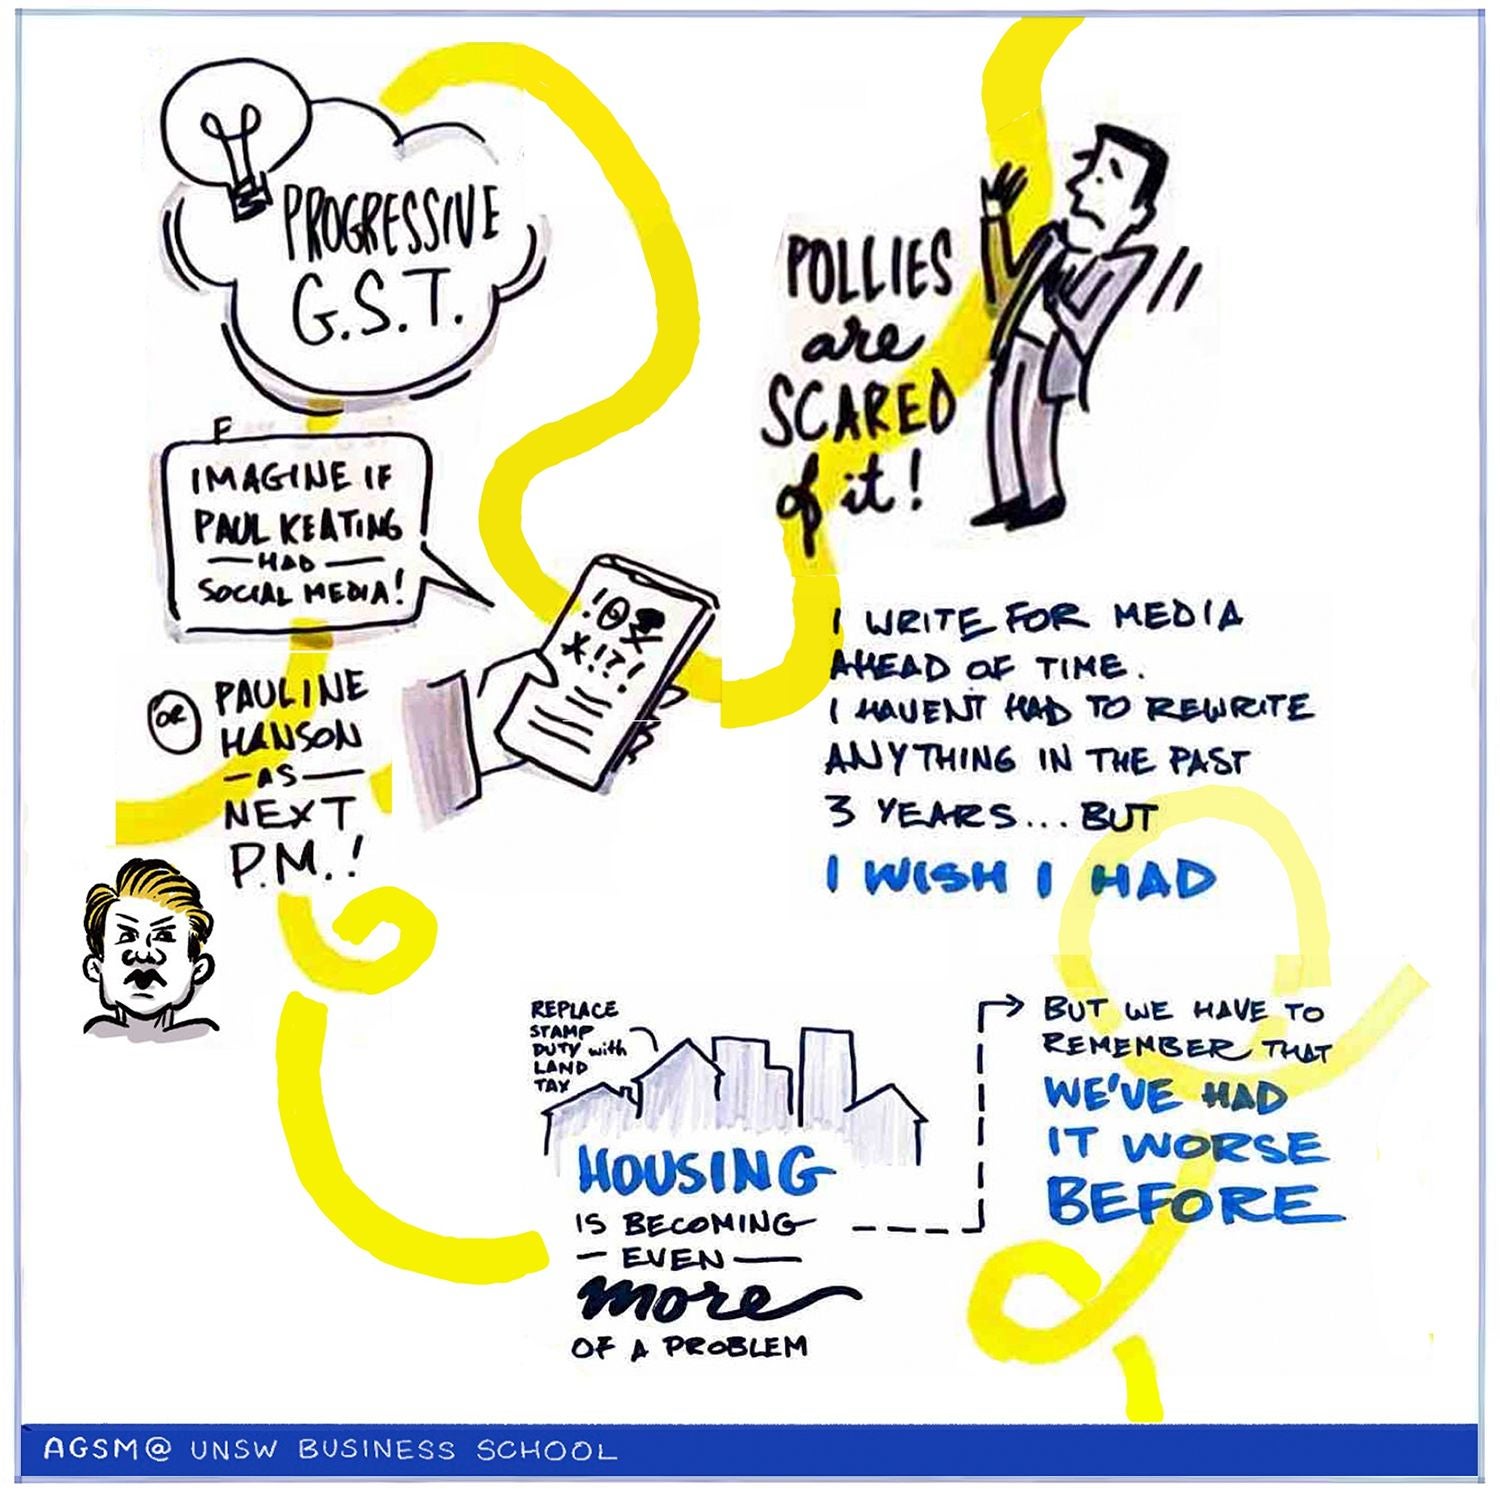 PROGRESSIVE
G.S.T.
POLLIES
are
SCARED
of it!
F
IMAGINE IF
PAUL KEATING
HAD
SOCIAL MEDIA!
!
*!?!
OR
PAULINE
HANSON
AS
NEXT
P.M.!
I WRITE FOR MEDIA
AHEAD OF TIME.
I HAVEN'T HAD TO REWRITE
ANYTHING IN THE PAST
3 YEARS... BUT
I WISH I HAD
REPLACE
STAMP
DUTY with
LAND
TAX
HOUSING
IS BECOMING
EVEN
more
OF A PROBLEM
BUT WE HAVE TO
REMEMBER THAT
WE'VE HAD
IT WORSE
BEFORE
AGSM@ UNSW BUSINESS SCHOOL